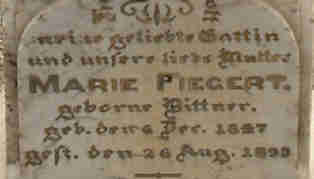 meine geliebte Gattin
und unsere liebe Mutter
MARIE PIEGERT.
geborne Bittner.
geb. den 6 Dec. 1827
gest. den 26 Aug. 1899